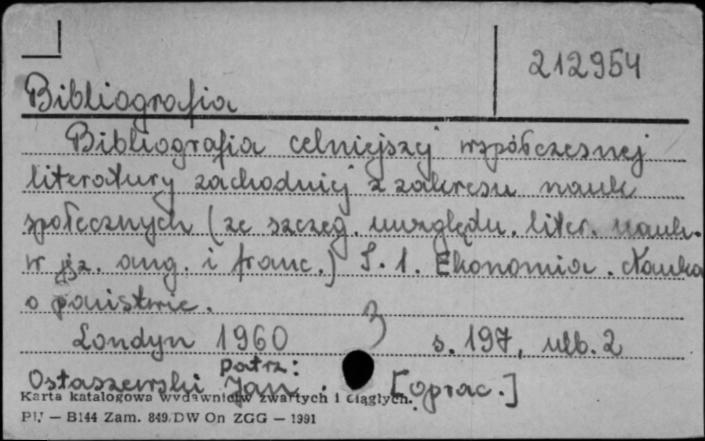 212954
Bibliografia
Bibliografia celniejszej współczesnej
literatury zachodniej z zakresu nauk
społecznych (ze szczeg. uwzględn. liter. nauk.
w jęz. ang. i franc.) T. 1. Ekonomia. Nauka
o państwie.
Londyn 1960 s. 197, nlb. 2
patrz:
Ostaszewski Jan. [oprac.]
Karta katalogowa wydawnictw zwartych i ciągłych.
Pu — B144 Zam. 849/DW On ZGG — 1991